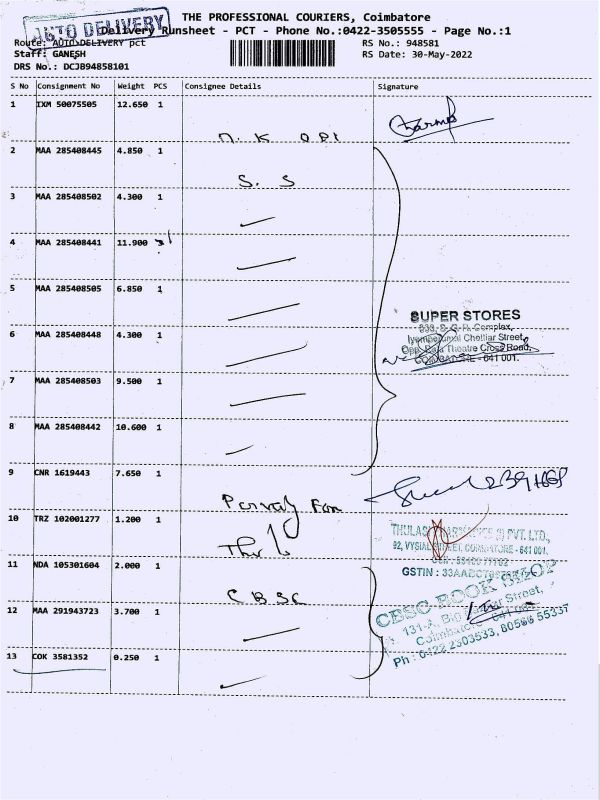 AUTO DELIVERY
THE PROFESSIONAL COURIERS, Coimbatore
Delivery Runsheet - PCT - Phone No.:0422-3505555 - Page No.:1
Route: AUTO DELIVERY pct RS No.: 948581
Staff: GANESH RS Date: 30-May-2022
DRS No.: DCJB94858101
S No Consignment No Weight PCS Consignee Details Signature
1 IXM 50075505 12.650 1
n. K OPI
2 MAA 285408445 4.850 1
S. S
3 MAA 285408502 4.300 1
4 MAA 285408441 11.900 1
5 MAA 285408505 6.850 1
SUPER STORES
Complex,
6 MAA 285408448 4.300 1
Chettiar Street,
Theatre Cross Road,
COIMBATORE - 641 001.
7 MAA 285408503 9.500 1
8 MAA 285408442 10.600 1
9 CNR 1619443 7.650 1
10 TRZ 102001277 1.200 1
PVT. LTD.,
92, VYSIAL STREET, COIMBATORE - 641 001.
11 NDA 105301604 2.000 1
GSTIN :
CBSC
CBSC BOOK SHOP
12 MAA 291943723 3.700 1
131-A, Big Street,
Coimbatore - 641 001
Ph : 0422 2303533, 80566 55337
13 COK 3581352 0.250 1